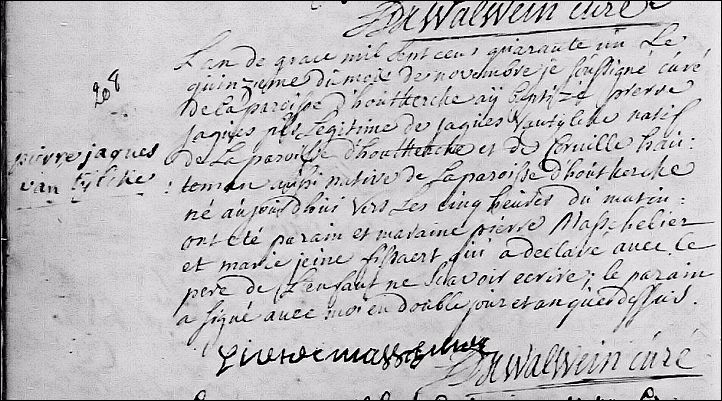 DeWalwein curé
L'an de grace mil sept cens quarante un Le
quinzieme du mois de novembre je soussigné curé
208
de La paroisse d'houtkerke aÿ baptizé pierre
jaques fils Legitime de jaques Vantylcke natif
pierre jaques
de La paroisse d'houtkerke et de
van tylcke
aussi native de La paroisse d'houtkerche
né aujourd'hui vers Les cinq heures du matin:
ont été parain et maraine pierre Masschelier
et marie jeine qui a declaré avec le
pere de L'enfant ne scavoir ecrire; le parain
a signé avec moi en double jour et an que dessus.
pieter
DeWalwein curé